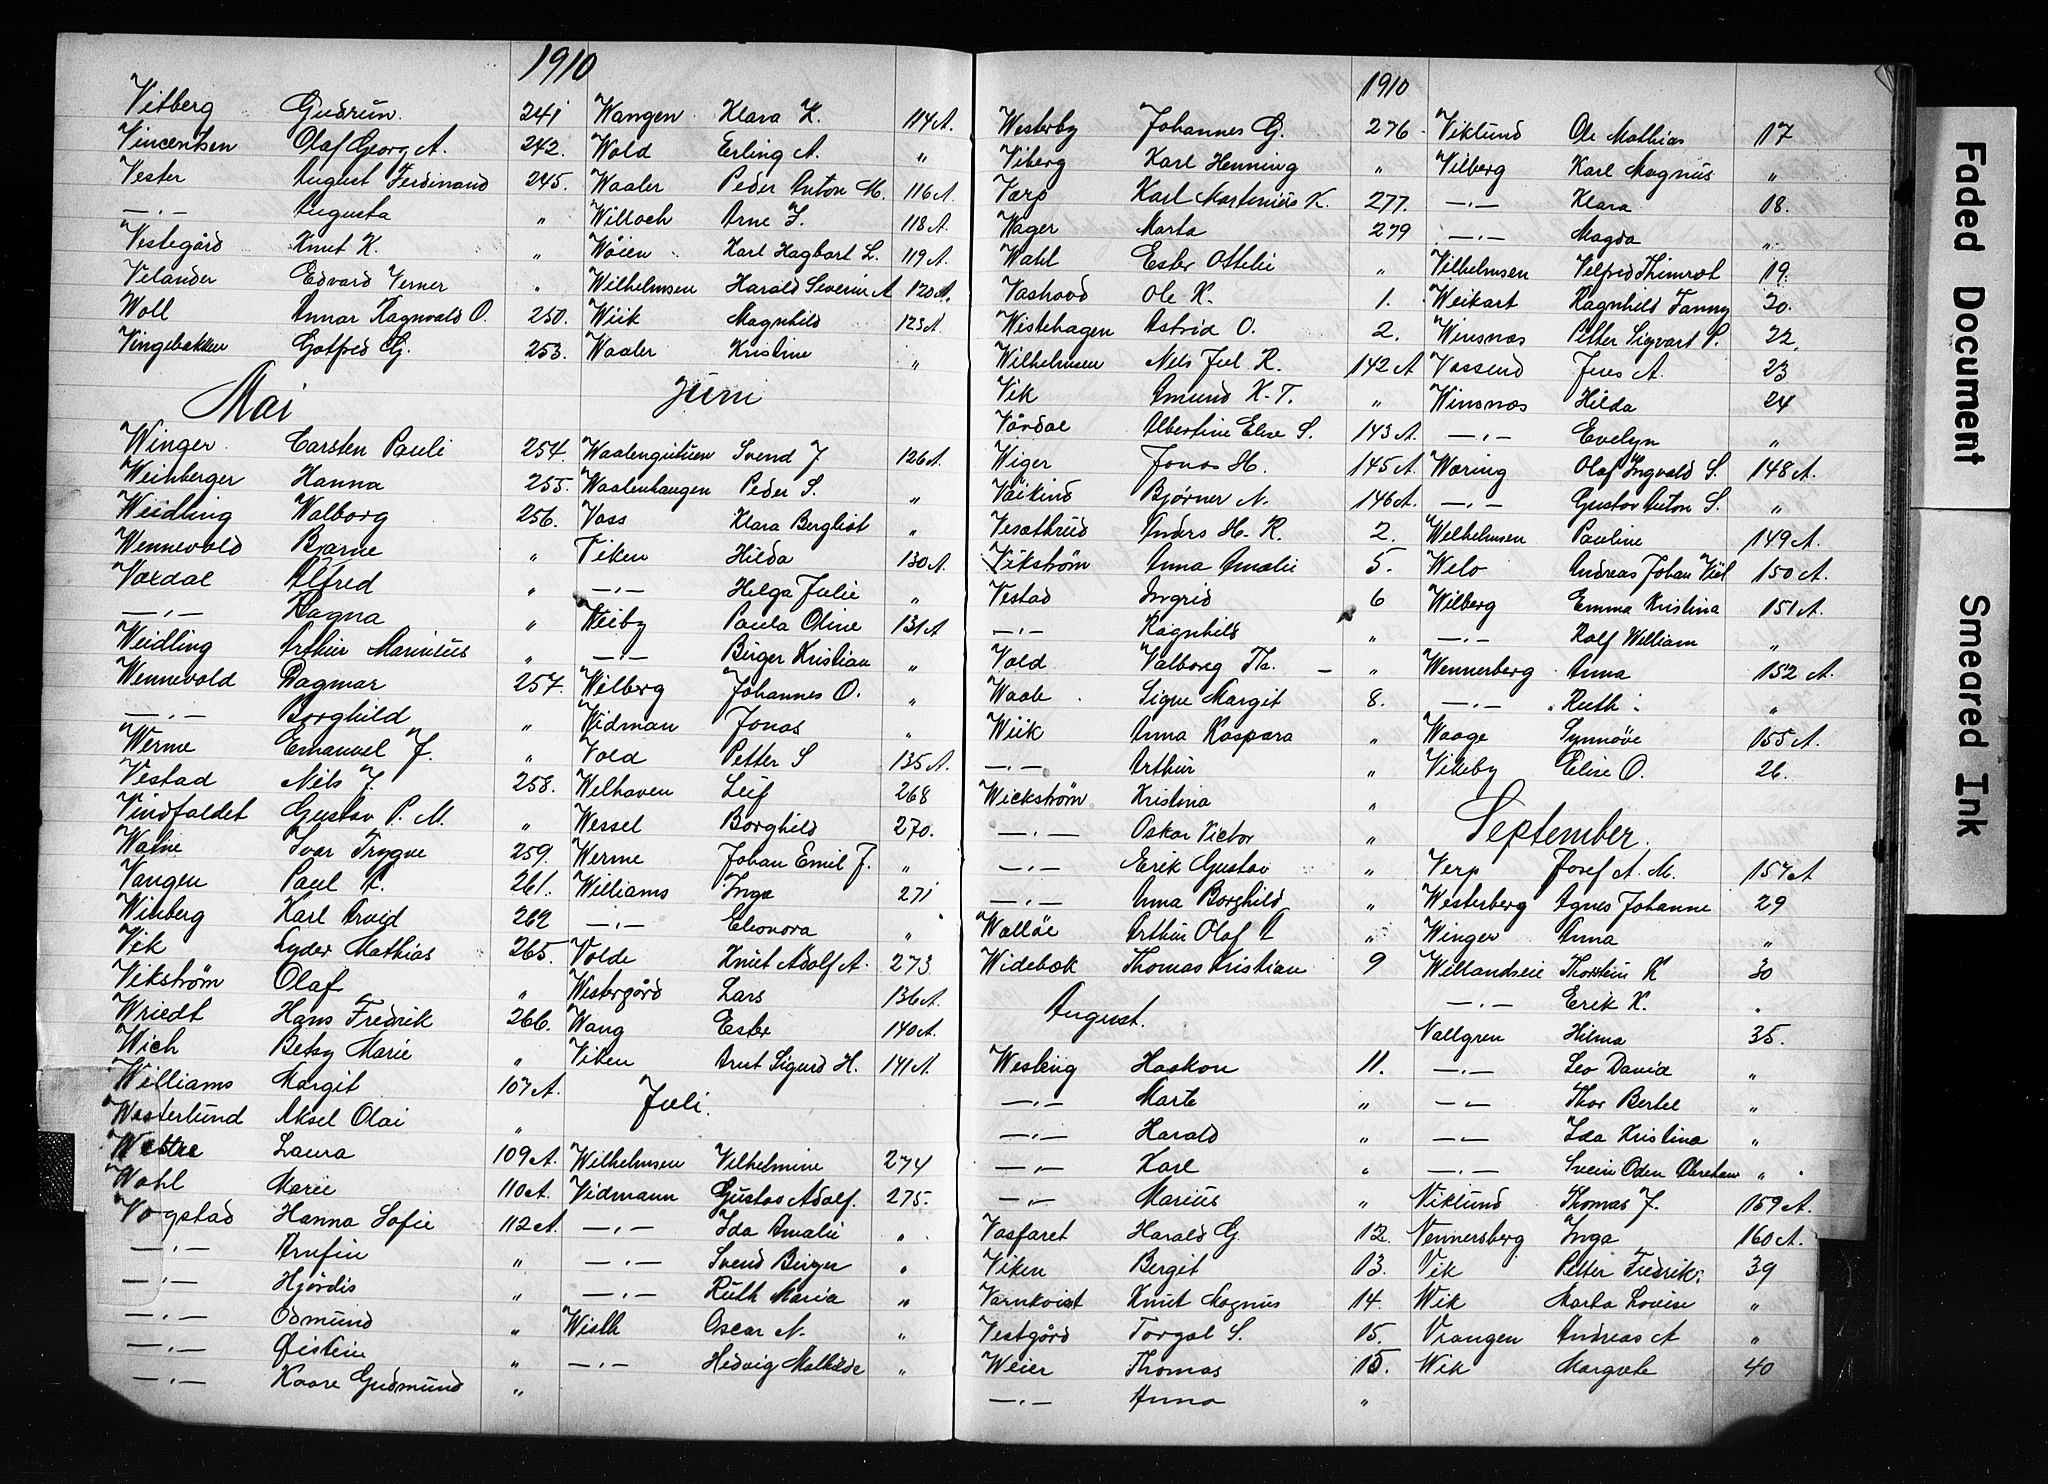 1910
Vitberg Gudrun. 241
Vincentsen Olaf Georg A. 242.
Vester August Ferdinand 245.
—„— Augusta „
Vestegård Knut K. „
Velander Edvard Verner „
Woll Annar Ragnvald O. 250.
Vingebakken Gotfred G. 253.
Mai
Winger Carsten Pauli 254.
Weinberger Hanna 255.
Weidling Walborg 256.
Wennevold Bjarne „
Værdal Alfred „
—„— Ragna „
Weidling Arthur Marinius „
Wennevold Dagmar 257.
—„— Borghild „
Werme Emanuel J. „
Vestad Nils J. 258.
Vindfaldet Gustav P. M. „
Walne Ivar Trygve 259.
Vangen Paul A. 261.
Winberg Karl Arvid 262
Vik Lyder Mathias 265.
Vikstrøm Olaf „
Wriedt Hans Fredrik 266.
Wich Betsy Marie „
Williams Margit 107 A.
Westerlund Aksel Olai „
Westre Laura 109 A.
Wahl Marie 110 A.
Vogstad Hanna Sofie 112 A.
—„— Arnfin „
—„— Hjørdis „
—„— Odmund „
—„— Øistein „
—„— Kaare Gudmund „
Wangen Klara K. 114 A.
Wold Erling A. „
Waaler Peder Anton M. 116 A.
Willoch Arne J. 118 A.
Wøien Karl Hagbart L. 119 A.
Wilhelmsen Harald Severin A 120 A.
Wiik Magnhild 123 A.
Waaler Kristine „
Juni
Waalengutuen Svend J 126 A.
Waalenhaugen Peder S. „
Vass Klara Bergliot „
Viken Hilda 130 A.
—„— Helga Julie „
Weiby Paula Oline 131 A
—„— Birger Kristian „
Wilberg Johannes O. „
Widman Jonas „
Vold Petter S 135 A.
Welhaven Leif 268
Wessel Borghild 270.
Werme Johan Emil J. „
Williams Inga 271
—„— Eleonora „
Volde Knut Adolf A. 273
Westergård Lars 136 A.
Wang Ester 140 A.
Viken Arnt Sigurd H. 141 A.
Juli.
Wilhelmsen Vilhelmine 274
Vidmann Gustav Adolf. 275.
—„— Ida Amalie „
—„— Svend Birger „
—„— Ruth Maria „
Wisth Oscar N. „
—„— Hedvig Mathilde „
1910
Westerby Johannes G. 276
Viberg Karl Henning „
Værp Karl Martenius K. 277.
Wager Marta 279
Wahl Ester Ottilie „
Vashovd Ole K. 1.
Wistehagen Astrid O. 2.
Wilhelmsen Nils Juel R. 142 A
Vik Amund K. T. „
Vårdal Albertine Elise S. 143 A.
Wiger Jonas H. 145 A.
Våikind Bjørner N. 146 A.
Vesattrud Anders H. R. 2.
Vikstrøm Anna Amalie 5.
Vestad Ingrid 6
—„— Ragnhild „
Vold Valborg Th. — „
Waale Signe Margit 8.
Wiik Anna Kaspara „
—„— Arthur „
Wickstrøm Kristina „
—„— Oskar Victor „
—„— Erik Gustav „
—„— Anna Borghild „
Walløe Arthur Olaf A „
Widebæk Thomas Kristian 9
August.
Wesling Haakon 11.
—„— Marte „
—„— Harald „
—„— Karl „
—„— Marius „
Vasfaret Harald G. 12.
Viken Bergit 13.
Varnkvist Knut Magnus 14.
Vestgård Torgal S. 15.
Weier Thomas 15.
—„— Anna „
Viklund Ole Mathias 17
Vilberg Karl Magnus „
—„— Klara 18.
—„— Magda „
Vilhelmsen Vilfred Thimrot 19.
Weikart Ragnhild Fanny 20.
Winsnæs Petter Sigvart P. 22.
Vassend Jens A. 23
Winsnæs Hilda 24
—„— Evelyn „
Wæring Olaf Ingvald S. 148 A.
—„— Gustav Anton S. „
Welhelmsen Pauline 149 A.
Welo Andreas Johan 150 A.
Wilberg Emma Kristina 151 A.
—„— Rolf William „
Wennerberg Anna 152 A.
—„— Ruth „
Waage Synnøve 155 A.
Vikeby Elise O. 26.
September.
Verp Josef A. M. 157 A
Westerberg Agnes Johanne 29
Winger Anna „
Willandseie Thorstein K 30
—„— Erik K. „
Vallgren Hilma 35.
—„— Leo David „
—„— Thor Bertel „
—„— Ida Kristina „
—„— Svein Oden Abraham „
Viklund Thomas J. 159 A.
Vennersberg Inga 160 A.
Vik Petter Fredrik 39
Wik Marta Lovise „
Vrangen Andreas A „
Wik Margrete 40
Faded Document
Smeared Ink